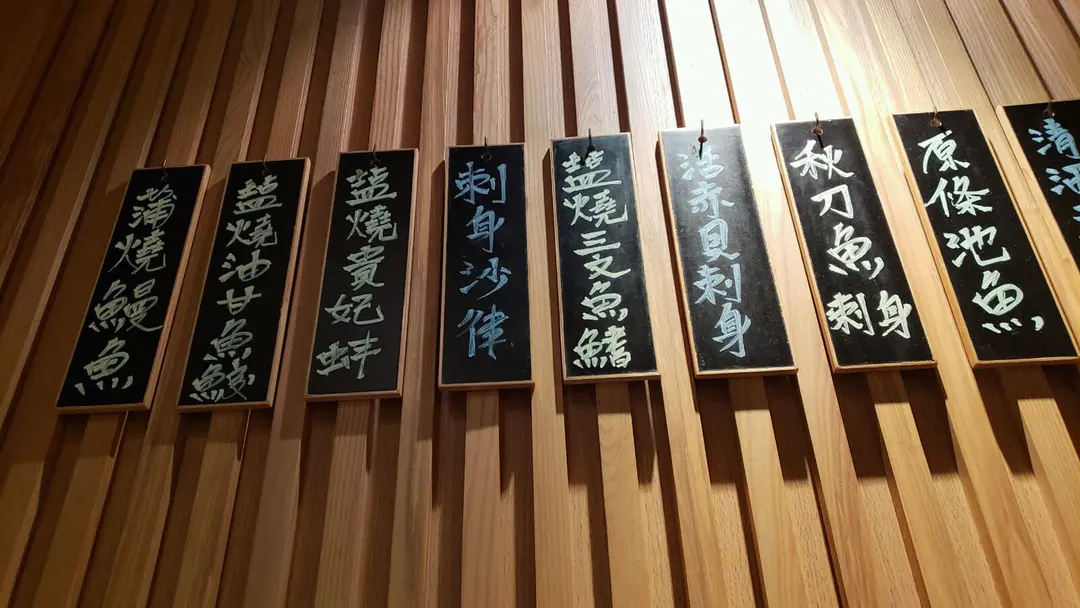 蒲燒鰻魚
盐燒油甘魚鮫
盐燒貴妃蚌
刺身沙律
盐燒三文魚鰭
活赤貝刺身
秋刀魚刺身
原條池魚
清酒